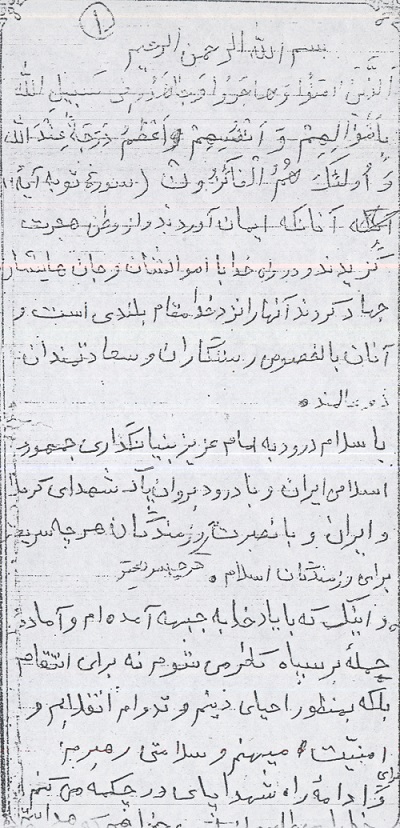 ۱
بسم الله الرحمن الرحیم
الذین امنوا و هاجروا و جاهدوا فی سبیل الله
باموالهم و انفسهم اعظم درجة عند الله
و اولئک هم الفائزون (سوره توبه آیه
آنانکه ایمان آوردند و از وطن هجرت
گزیدند و در راه خدا با اموالشان و جان هایشان
جهاد کردند آنها را نزد خدا مقام بلندی است و
آنان بالخصوص رستگاران و سعادتمندان
با سلام درود به امام عزیز بنیانگذاری جمهور
اسلامی ایران و با درود بروان پاک شهدای کربلا
و ایران و با نصرت رزمندگان هر چه سریعتر
برای رزمندگان اسلام .
و اینک که با یاد خدا به جبهه آمده ام و آماده
حمله بر سپاه کفر می شوم نه برای انتقام
بلکه بمنظور احیای دینم و تداوم انقلابم و
امنیت میهنم و سلامتی رهبرم
برای
و ادامه راه شهدا پای در چکمه می کنم